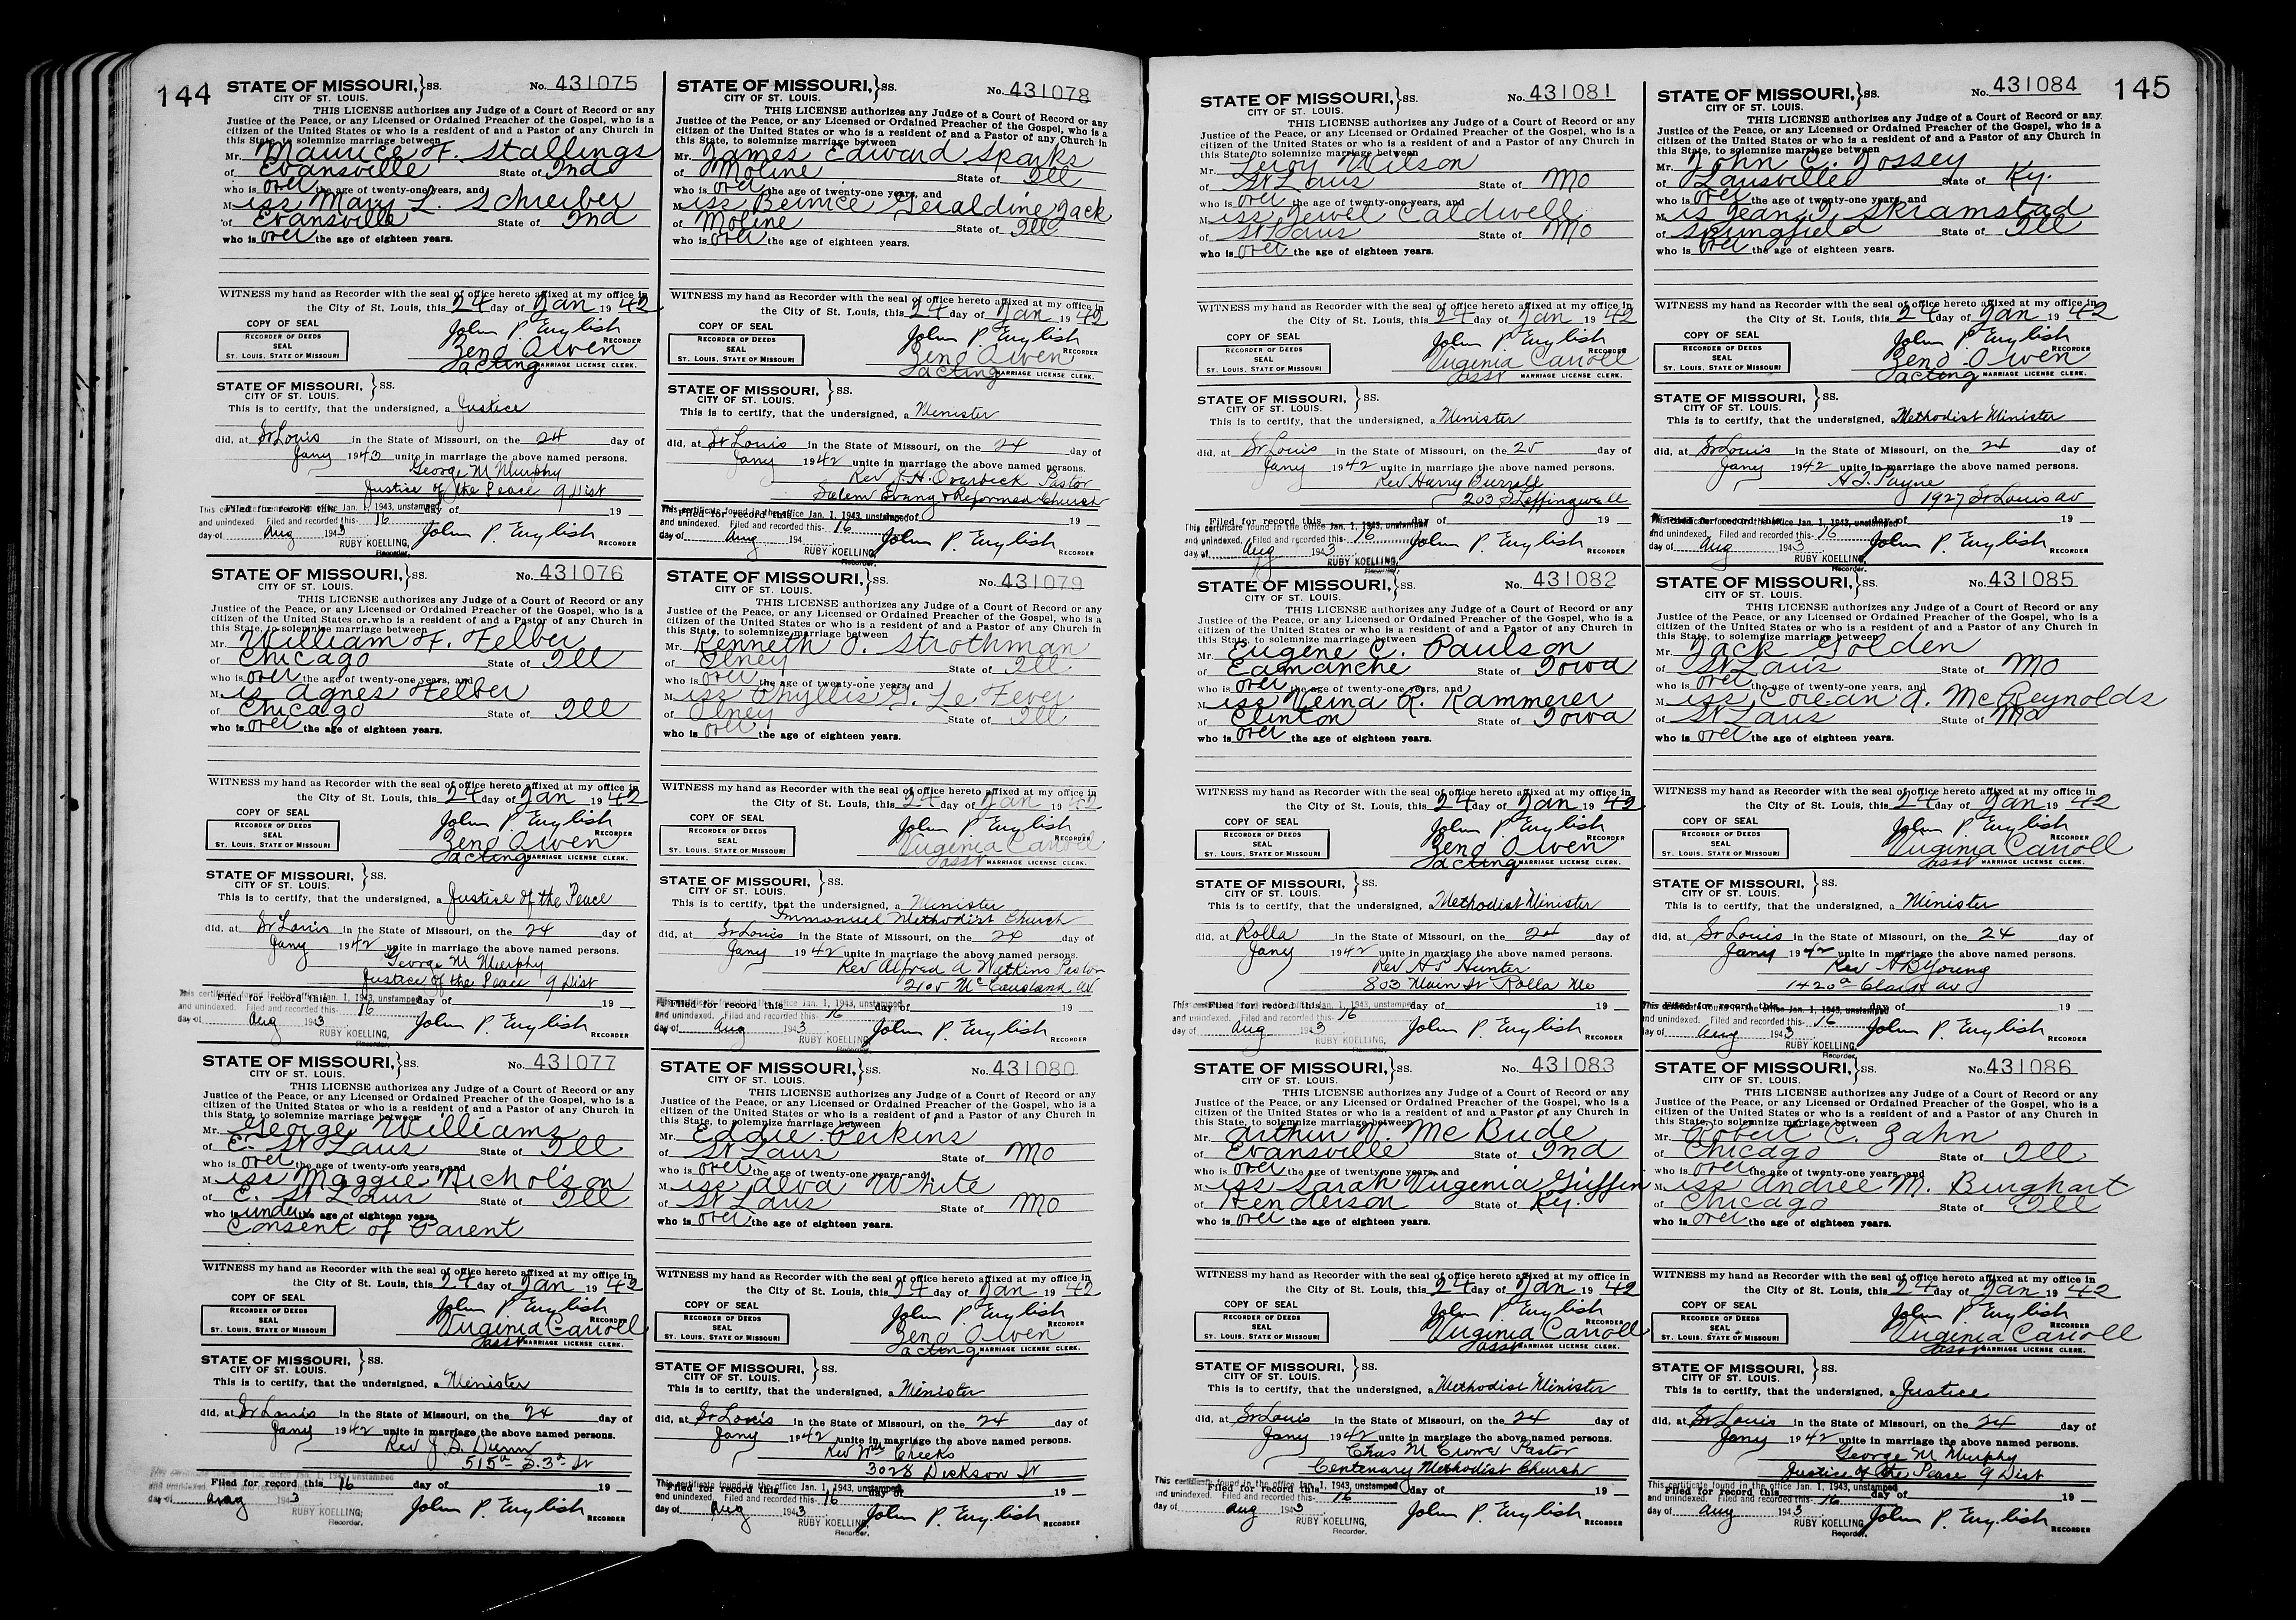 144
STATE OF MISSOURI, } SS. No. 431075
CITY OF ST. LOUIS.
THIS LICENSE authorizes any Judge of a Court of Record or any
Justice of the Peace, or any Licensed or Ordained Preacher of the Gospel, who is a
citizen of the United States or who is a resident of and a Pastor of any Church in
this State, to solemnize marriage between
Mr. Maurice F. Stallings
of Evansville State of Ind
who is over the age of twenty-one years, and
Miss Mary L. Schreiber
of Evansville State of Ind
who is over the age of eighteen years.
WITNESS my hand as Recorder with the seal of office hereto affixed at my office in
the City of St. Louis, this 24 day of Jan 1942
COPY OF SEAL John P. English
RECORDER OF DEEDS RECORDER
SEAL Zeno Owen
ST. LOUIS, STATE OF MISSOURI acting MARRIAGE LICENSE CLERK.
STATE OF MISSOURI, } SS.
CITY OF ST. LOUIS.
This is to certify, that the undersigned, a Justice
did, at St Louis in the State of Missouri, on the 24 day of
Jany 1943 unite in marriage the above named persons.
George M Murphy
Justice of the Peace 9 Dist
Filed for record this day of 19
This certificate found in the office Jan. 1, 1943, unstamped
and unindexed. Filed and recorded this 16
day of Aug 1943 John P. English
RUBY KOELLING, RECORDER
Recorder.
STATE OF MISSOURI, } SS. No. 431076
CITY OF ST. LOUIS.
THIS LICENSE authorizes any Judge of a Court of Record or any
Justice of the Peace, or any Licensed or Ordained Preacher of the Gospel, who is a
citizen of the United States or who is a resident of and a Pastor of any Church in
this State, to solemnize marriage between
Mr. William F. Felber
of Chicago State of Ill
who is over the age of twenty-one years, and
Mis Agnes Felber
of Chicago State of Ill
who is over the age of eighteen years.
WITNESS my hand as Recorder with the seal of office hereto affixed at my office in
the City of St. Louis, this 24 day of Jan 1942
COPY OF SEAL John P. English
RECORDER OF DEEDS RECORDER
SEAL Zeno Owen
ST. LOUIS, STATE OF MISSOURI acting MARRIAGE LICENSE CLERK.
STATE OF MISSOURI, } SS.
CITY OF ST. LOUIS.
This is to certify, that the undersigned, a Justice of the Peace
did, at St Louis in the State of Missouri, on the 24 day of
Jany 1942 unite in marriage the above named persons.
George M Murphy
Justice of the Peace 9 Dist
Filed for record this day of 19
This certificate found in the office Jan. 1, 1943, unstamped
and unindexed. Filed and recorded this 16
day of Aug 1943 John P. English
RUBY KOELLING, RECORDER
Recorder.
STATE OF MISSOURI, } SS. No. 431077
CITY OF ST. LOUIS.
THIS LICENSE authorizes any Judge of a Court of Record or any
Justice of the Peace, or any Licensed or Ordained Preacher of the Gospel, who is a
citizen of the United States or who is a resident of and a Pastor of any Church in
this State, to solemnize marriage between
Mr. George Williams
of E. St Louis State of Ill
who is over the age of twenty-one years, and
Miss Maggie Nicholson
of E. St Louis State of Ill
who is under the age of eighteen years.
Consent of Parent
WITNESS my hand as Recorder with the seal of office hereto affixed at my office in
the City of St. Louis, this 24 day of Jan 1942
COPY OF SEAL John P. English
RECORDER OF DEEDS RECORDER
SEAL Virginia Carroll
ST. LOUIS, STATE OF MISSOURI asst MARRIAGE LICENSE CLERK.
STATE OF MISSOURI, } SS.
CITY OF ST. LOUIS.
This is to certify, that the undersigned, a Minister
did, at St Louis in the State of Missouri, on the 24 day of
Jany 1942 unite in marriage the above named persons.
Rev J. D. Dunn
515a S. 3d St
Filed for record this 16 day of 19
This certificate found in the office Jan. 1, 1943, unstamped
and unindexed. Filed and recorded this
day of Aug 1943 John P. English
RUBY KOELLING, RECORDER
Recorder.
STATE OF MISSOURI, } SS. No. 431078
CITY OF ST. LOUIS.
THIS LICENSE authorizes any Judge of a Court of Record or any
Justice of the Peace, or any Licensed or Ordained Preacher of the Gospel, who is a
citizen of the United States or who is a resident of and a Pastor of any Church in
this State, to solemnize marriage between
Mr. James Edward Sparks
of Moline State of Ill
who is over the age of twenty-one years, and
Miss Bernice Geraldine Jack
of Moline State of Ill
who is over the age of eighteen years.
WITNESS my hand as Recorder with the seal of office hereto affixed at my office in
the City of St. Louis, this 24 day of Jan 1942
COPY OF SEAL John P. English
RECORDER OF DEEDS RECORDER
SEAL Zeno Owen
ST. LOUIS, STATE OF MISSOURI acting MARRIAGE LICENSE CLERK.
STATE OF MISSOURI, } SS.
CITY OF ST. LOUIS.
This is to certify, that the undersigned, a Minister
did, at St Louis in the State of Missouri, on the 24 day of
Jany 1942 unite in marriage the above named persons.
Rev J. H. Overbeck Pastor
Salem Evang & Reformed Church
Filed for record this day of 19
This certificate found in the office Jan. 1, 1943, unstamped
and unindexed. Filed and recorded this 16
day of Aug 194 John P. English
RUBY KOELLING, RECORDER
Recorder.
STATE OF MISSOURI, } SS. No. 431079
CITY OF ST. LOUIS.
THIS LICENSE authorizes any Judge of a Court of Record or any
Justice of the Peace, or any Licensed or Ordained Preacher of the Gospel, who is a
citizen of the United States or who is a resident of and a Pastor of any Church in
this State, to solemnize marriage between
Mr. Kenneth O. Strothman
of Olney State of Ill
who is over the age of twenty-one years, and
Miss Phyllis G. Le Fever
of Olney State of Ill
who is over the age of eighteen years.
WITNESS my hand as Recorder with the seal of office hereto affixed at my office in
the City of St. Louis, this 24 day of Jan 1942
COPY OF SEAL John P. English
RECORDER OF DEEDS RECORDER
SEAL Virginia Carroll
ST. LOUIS, STATE OF MISSOURI asst MARRIAGE LICENSE CLERK.
STATE OF MISSOURI, } SS.
CITY OF ST. LOUIS.
This is to certify, that the undersigned, a Minister
Immanuel Methodist Church
did, at St Louis in the State of Missouri, on the 24 day of
Jany 1942 unite in marriage the above named persons.
Rev Alfred A Watkins Pastor
2105 McCausland Av
Filed for record this day of 19
This certificate found in the office Jan. 1, 1943, unstamped
and unindexed. Filed and recorded this 16
day of Aug 1943 John P. English
RUBY KOELLING, RECORDER
Recorder.
STATE OF MISSOURI, } SS. No. 431080
CITY OF ST. LOUIS.
THIS LICENSE authorizes any Judge of a Court of Record or any
Justice of the Peace, or any Licensed or Ordained Preacher of the Gospel, who is a
citizen of the United States or who is a resident of and a Pastor of any Church in
this State, to solemnize marriage between
Mr. Eddie Perkins
of St Louis State of Mo
who is over the age of twenty-one years, and
Miss Alva White
of St Louis State of Mo
who is over the age of eighteen years.
WITNESS my hand as Recorder with the seal of office hereto affixed at my office in
the City of St. Louis, this 24 day of Jan 1942
COPY OF SEAL John P. English
RECORDER OF DEEDS RECORDER
SEAL Zeno Owen
ST. LOUIS, STATE OF MISSOURI acting MARRIAGE LICENSE CLERK.
STATE OF MISSOURI, } SS.
CITY OF ST. LOUIS.
This is to certify, that the undersigned, a Minister
did, at St Louis in the State of Missouri, on the 24 day of
Jany 1942 unite in marriage the above named persons.
Rev Wm Cheeks
3028 Dickson St
Filed for record this day of 19
This certificate found in the office Jan. 1, 1943, unstamped
and unindexed. Filed and recorded this 16
day of Aug 1943 John P. English
RUBY KOELLING, RECORDER
Recorder.
145
STATE OF MISSOURI, } SS. No. 431081
CITY OF ST. LOUIS.
THIS LICENSE authorizes any Judge of a Court of Record or any
Justice of the Peace, or any Licensed or Ordained Preacher of the Gospel, who is a
citizen of the United States or who is a resident of and a Pastor of any Church in
this State, to solemnize marriage between
Mr. Leroy Wilson
of St Louis State of Mo
who is over the age of twenty-one years, and
Miss Jewel Caldwell
of St Louis State of Mo
who is over the age of eighteen years.
WITNESS my hand as Recorder with the seal of office hereto affixed at my office in
the City of St. Louis, this 24 day of Jan 1942
COPY OF SEAL John P. English
RECORDER OF DEEDS RECORDER
SEAL Virginia Carroll
ST. LOUIS, STATE OF MISSOURI asst MARRIAGE LICENSE CLERK.
STATE OF MISSOURI, } SS.
CITY OF ST. LOUIS.
This is to certify, that the undersigned, a Minister
did, at St Louis in the State of Missouri, on the 25 day of
Jany 1942 unite in marriage the above named persons.
Rev Harry Burrell
203 S Leffingwell
Filed for record this day of 19
This certificate found in the office Jan. 1, 1943, unstamped
and unindexed. Filed and recorded this 16
day of Aug 1943 John P. English
RUBY KOELLING, RECORDER
Recorder.
STATE OF MISSOURI, } SS. No. 431082
CITY OF ST. LOUIS.
THIS LICENSE authorizes any Judge of a Court of Record or any
Justice of the Peace, or any Licensed or Ordained Preacher of the Gospel, who is a
citizen of the United States or who is a resident of and a Pastor of any Church in
this State, to solemnize marriage between
Mr. Eugene C. Paulson
of Camanche State of Iowa
who is over the age of twenty-one years, and
Miss Verna R. Kammerer
of Clinton State of Iowa
who is over the age of eighteen years.
WITNESS my hand as Recorder with the seal of office hereto affixed at my office in
the City of St. Louis, this 24 day of Jan 1942
COPY OF SEAL John P. English
RECORDER OF DEEDS RECORDER
SEAL Zeno Owen
ST. LOUIS, STATE OF MISSOURI acting MARRIAGE LICENSE CLERK.
STATE OF MISSOURI, } SS.
CITY OF ST. LOUIS.
This is to certify, that the undersigned, a Methodist Minister
did, at Rolla in the State of Missouri, on the 24 day of
Jany 1942 unite in marriage the above named persons.
Rev H P Hunter
803 Main St Rolla Mo
Filed for record this day of 19
This certificate found in the office Jan. 1, 1943, unstamped
and unindexed. Filed and recorded this 16
day of Aug 1943 John P. English
RUBY KOELLING, RECORDER
Recorder.
STATE OF MISSOURI, } SS. No. 431083
CITY OF ST. LOUIS.
THIS LICENSE authorizes any Judge of a Court of Record or any
Justice of the Peace, or any Licensed or Ordained Preacher of the Gospel, who is a
citizen of the United States or who is a resident of and a Pastor of any Church in
this State, to solemnize marriage between
Mr. Arthur V. McBride
of Evansville State of Ind
who is over the age of twenty-one years, and
Miss Sarah Virginia Griffin
of Henderson State of Ky.
who is over the age of eighteen years.
WITNESS my hand as Recorder with the seal of office hereto affixed at my office in
the City of St. Louis, this 24 day of Jan 1942
COPY OF SEAL John P. English
RECORDER OF DEEDS RECORDER
SEAL Virginia Carroll
ST. LOUIS, STATE OF MISSOURI asst MARRIAGE LICENSE CLERK.
STATE OF MISSOURI, } SS.
CITY OF ST. LOUIS.
This is to certify, that the undersigned, a Methodist Minister
did, at St Louis in the State of Missouri, on the 24 day of
Jany 1942 unite in marriage the above named persons.
Chas M Crowe Pastor
Centenary Methodist Church
Filed for record this day of 19
This certificate found in the office Jan. 1, 1943, unstamped
and unindexed. Filed and recorded this 16
day of Aug 1943 John P. English
RUBY KOELLING, RECORDER
Recorder.
STATE OF MISSOURI, } SS. No. 431084
CITY OF ST. LOUIS.
THIS LICENSE authorizes any Judge of a Court of Record or any
Justice of the Peace, or any Licensed or Ordained Preacher of the Gospel, who is a
citizen of the United States or who is a resident of and a Pastor of any Church in
this State, to solemnize marriage between
Mr. John C. Jossey
of Louisville State of Ky.
who is over the age of twenty-one years, and
Mis Jean I. Skramstad
of Springfield State of Ill
who is over the age of eighteen years.
WITNESS my hand as Recorder with the seal of office hereto affixed at my office in
the City of St. Louis, this 24 day of Jan 1942
COPY OF SEAL John P. English
RECORDER OF DEEDS RECORDER
SEAL Zeno Owen
ST. LOUIS, STATE OF MISSOURI acting MARRIAGE LICENSE CLERK.
STATE OF MISSOURI, } SS.
CITY OF ST. LOUIS.
This is to certify, that the undersigned, a Methodist Minister
did, at St Louis in the State of Missouri, on the 24 day of
Jany 1942 unite in marriage the above named persons.
A. T. Payne
1927 St Louis av
Filed for record this day of 19
This certificate found in the office Jan. 1, 1943, unstamped
and unindexed. Filed and recorded this 16
day of Aug 1943 John P. English
RUBY KOELLING, RECORDER
Recorder.
STATE OF MISSOURI, } SS. No. 431085
CITY OF ST. LOUIS.
THIS LICENSE authorizes any Judge of a Court of Record or any
Justice of the Peace, or any Licensed or Ordained Preacher of the Gospel, who is a
citizen of the United States or who is a resident of and a Pastor of any Church in
this State, to solemnize marriage between
Mr. Jack Golden
of St Louis State of Mo
who is over the age of twenty-one years, and
Miss Corean A. McReynolds
of St Louis State of Mo
who is over the age of eighteen years.
WITNESS my hand as Recorder with the seal of office hereto affixed at my office in
the City of St. Louis, this 24 day of Jan 1942
COPY OF SEAL John P. English
RECORDER OF DEEDS RECORDER
SEAL Virginia Carroll
ST. LOUIS, STATE OF MISSOURI asst MARRIAGE LICENSE CLERK.
STATE OF MISSOURI, } SS.
CITY OF ST. LOUIS.
This is to certify, that the undersigned, a Minister
did, at St Louis in the State of Missouri, on the 24 day of
Jany 1942 unite in marriage the above named persons.
Rev A B Young
1420a Clark av
Filed for record this day of 19
This certificate found in the office Jan. 1, 1943, unstamped
and unindexed. Filed and recorded this 16
day of Aug 1943 John P. English
RUBY KOELLING, RECORDER
Recorder.
STATE OF MISSOURI, } SS. No. 431086
CITY OF ST. LOUIS.
THIS LICENSE authorizes any Judge of a Court of Record or any
Justice of the Peace, or any Licensed or Ordained Preacher of the Gospel, who is a
citizen of the United States or who is a resident of and a Pastor of any Church in
this State, to solemnize marriage between
Mr. Robert C. Zahn
of Chicago State of Ill
who is over the age of twenty-one years, and
Miss Andree M. Burghart
of Chicago State of Ill
who is over the age of eighteen years.
WITNESS my hand as Recorder with the seal of office hereto affixed at my office in
the City of St. Louis, this 24 day of Jan 1942
COPY OF SEAL John P. English
RECORDER OF DEEDS RECORDER
SEAL Virginia Carroll
ST. LOUIS, STATE OF MISSOURI asst MARRIAGE LICENSE CLERK.
STATE OF MISSOURI, } SS.
CITY OF ST. LOUIS.
This is to certify, that the undersigned, a Justice
did, at St Louis in the State of Missouri, on the 24 day of
Jany 1942 unite in marriage the above named persons.
George M Murphy
Justice of the Peace 9 Dist
Filed for record this day of 19
This certificate found in the office Jan. 1, 1943, unstamped
and unindexed. Filed and recorded this 16
day of Aug 1943 John P. English
RUBY KOELLING, RECORDER
Recorder.